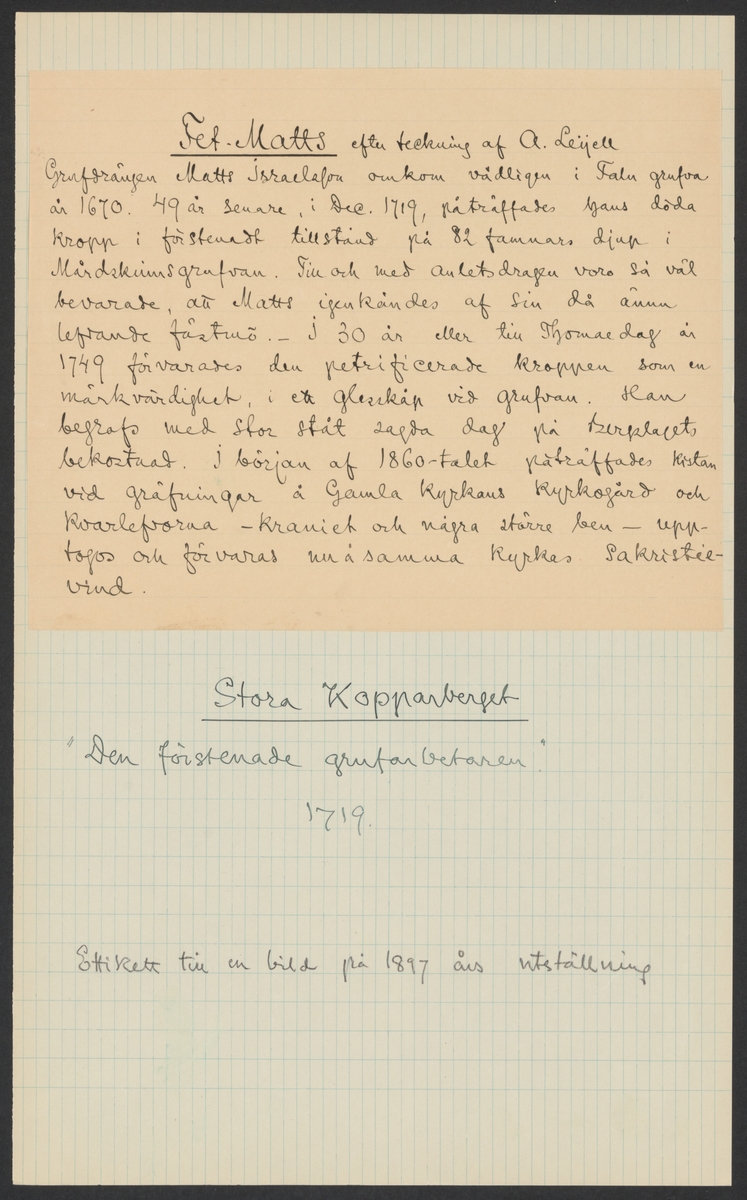 Fet-Matts efter teckning af A. Leijell
Grufdrängen Matts Israelsson omkom vådligen i Falu grufva
år 1670. 49 år senare, i Dec. 1719, påträffades hans döda
kropp i förstenadt tillstånd på 82 famnars djup i
Mårdskinnsgrufvan. Till och med anletsdragen voro så väl
bevarade, att Matts igenkändes af sin då ännu
lefvande fästmö. – I 30 år eller till Thomaedag år
1749 förvarades den petrificerade kroppen som en
märkvärdighet, i ett glasskåp vid grufvan. Han
begrofs med stor ståt sagda dag på Bergslagets
bekostnad. I början af 1860-talet påträffades kistan
vid gräfningar å Gamla Kyrkans Kyrkogård och
kvarlefvorna – kraniet och några större ben – upp-
togos och förvaras nu å samma kyrkas Sakristie-
vind.
Stora Kopparberget
"Den förstenade grufarbetaren".
1719.
Ettikett till en bild på 1897 års utställning